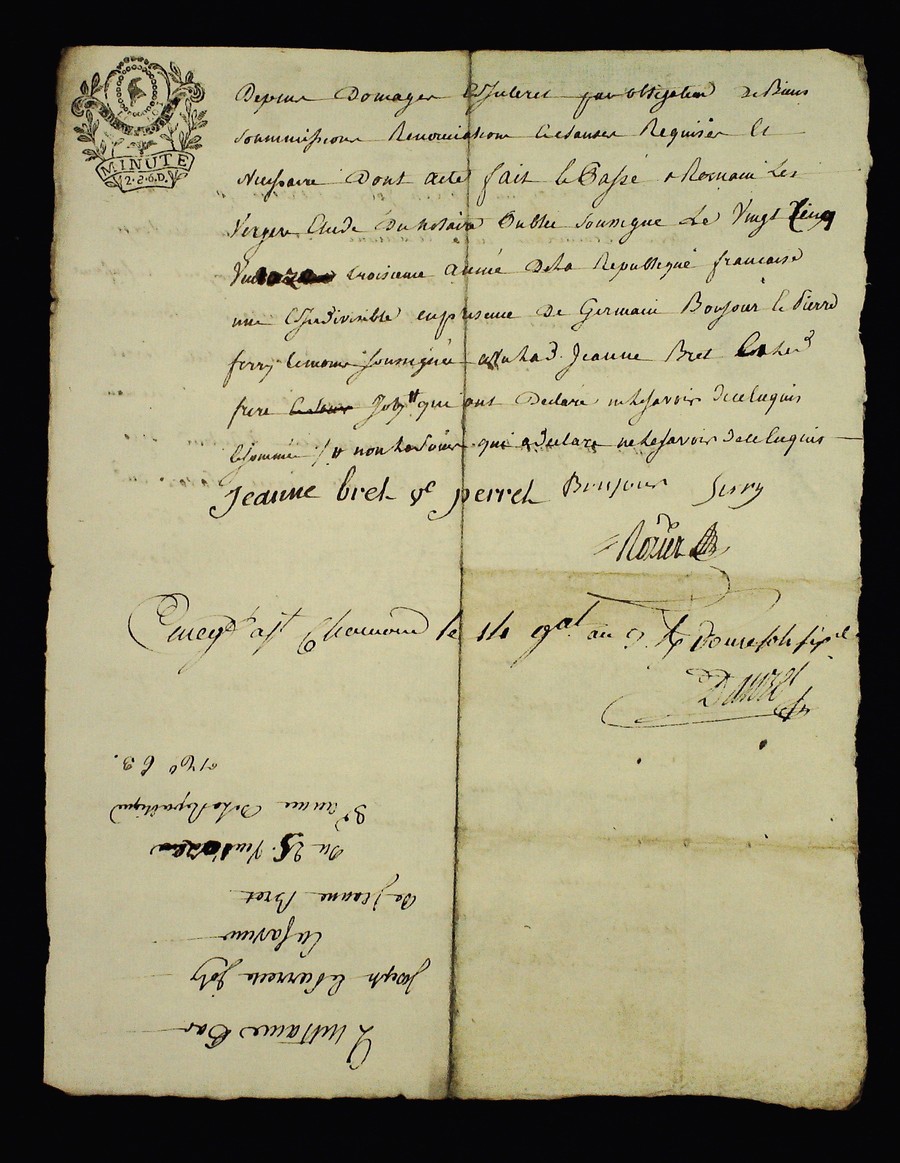 MINUTE
2. S. 6. D.
Depens Domages Esinterest par obligation De Biens
Soummissions Renonciations Clauses Requises Et
Necessaire Dont acte fait le Passé a Romain Les
Vergers Etude Du notaire Public soussigne Le Vingt Cinq
troisieme année De La Republique francaise
une Esindivisible en presence De Germain Bonjour le Pierre
ferry temoins soussignée Jeanne Bret
frere Joly qui ont Declaré ne le savoir De ce Enquis
Esommée non Lad qui a declaré ne le savoir De ce Enquis
Jeanne bret ve perret Bonjour ferry
Rozier
Enreg a st Chamond le 14 gal an 3. R
Danzel
Quittance Par
Joseph Et Pierrette Joly
En faveur
De Jeanne Bret
Du 25
3e annee De La Republique
63.